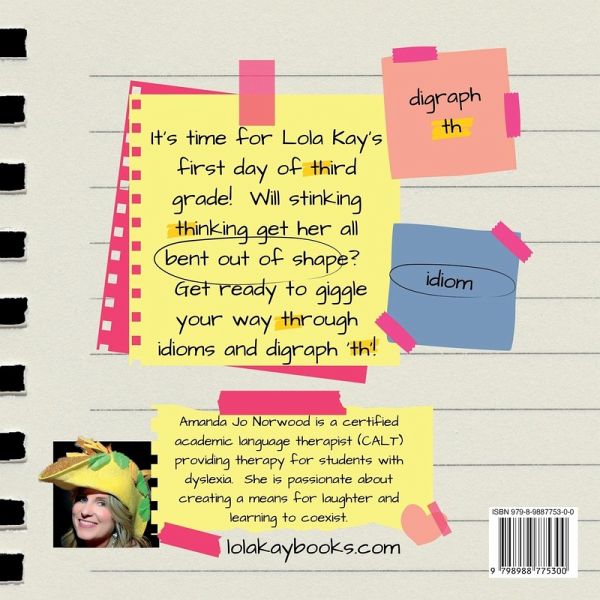 It's time for Lola Kay's
first day of third
grade! Will stinking
thinking get her all
bent out of shape?
Get ready to giggle
your way through
idioms and digraph 'th'!
digraph
th
idiom
Amanda Jo Norwood is a certified
academic language therapist (CALT)
providing therapy for students with
dyslexia. She is passionate about
creating a means for laughter and
learning to coexist.
lolakaybooks.com
ISBN 979-8-9887753-0-0
9 798988 775300